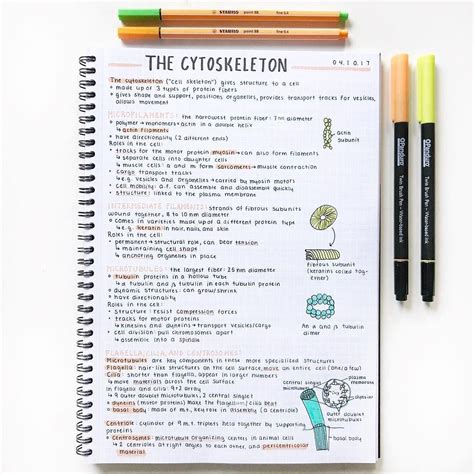 STABILO point 88 fine 0.4
STABILO point 88 fine 0.4
THE CYTOSKELETON
04.10.17
The cytoskeleton ("cell skeleton") gives structure to a cell
• made up of 3 types of protein fibers
• gives shape and support, positions organelles, provides transport tracks for vesicles,
allows movement
MICROFILAMENTS: the narrowest protein fiber: 7nm diameter
• polymer → monomers: actin in a double helix
↳ actin filaments
• have directionality (2 different ends)
Roles in cell:
• tracks for the motor protein myosin
↳ separate cells into daughter cells
↳ muscle cells: a and m form sarcomeres → muscle contraction
• cargo transport tracks
↳ e.g. vesicles and organelles → carried by myosin motors
• cell mobility: a.f. can assemble and disassemble quickly
• structure: linked to the plasma membrane
actin
subunit
INTERMEDIATE FILAMENTS: strands of fibrous subunits
wound together, 8 to 10 nm diameter
• comes in varieties made up of a different protein type
↳ e.g. keratin in hair, nails, and skin
Roles in the cell:
• permanent → structural role, can bear tension
↳ maintaining cell shape
↳ anchoring organelles in place
fibrous subunit
(keratins coiled together)
MICROTUBULES: the largest fiber: 25nm diameter
• tubulin proteins in a hollow tube
↳ α tubulin and β tubulin in each tubulin protein
• dynamic structures: can grow/shrink
• have directionality
Roles in the cell:
• structure: resist compression forces
• tracks for motor proteins
↳ kinesins and dyneins → transport vesicles/cargo
• cell division: pull chromosomes apart
↳ assemble into a spindle
An α and β tubulin
dimer
FLAGELLA, CILIA, AND CENTROSOMES:
Microtubules are key components in these more specialised structures
Flagella: hair-like structures on the cell surface, move an entire cell (one/few)
Cilia: shorter than flagella, appear in larger numbers
↳ move materials across the cell surface
in flagella and cilia:
↳ 9 outer doublet microtubules, 2 central singlet
• dyneins (motor proteins) make the flagellum/cilia beat
• basal body: made of m.t., key role in assembly (a centriole)
Centriole: cylinder of 9 m.t. triplets held together by supporting
proteins
• Centrosomes: microtubule organizing centers in animal cells
↳ 2 centrioles at right angles to each other, and pericentriolar
material
central singlet
microtubules
plasma
membrane
outer doublet
microtubules
basal body
OPandam Twin Brush Pen • Water-based Ink
OPandam Twin Brush Pen • Water-based Ink